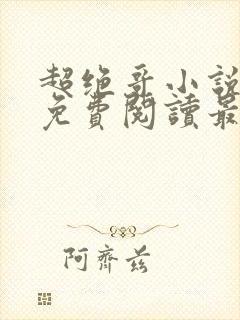 超绝哥小説
免費閱讀最
阿齊兹